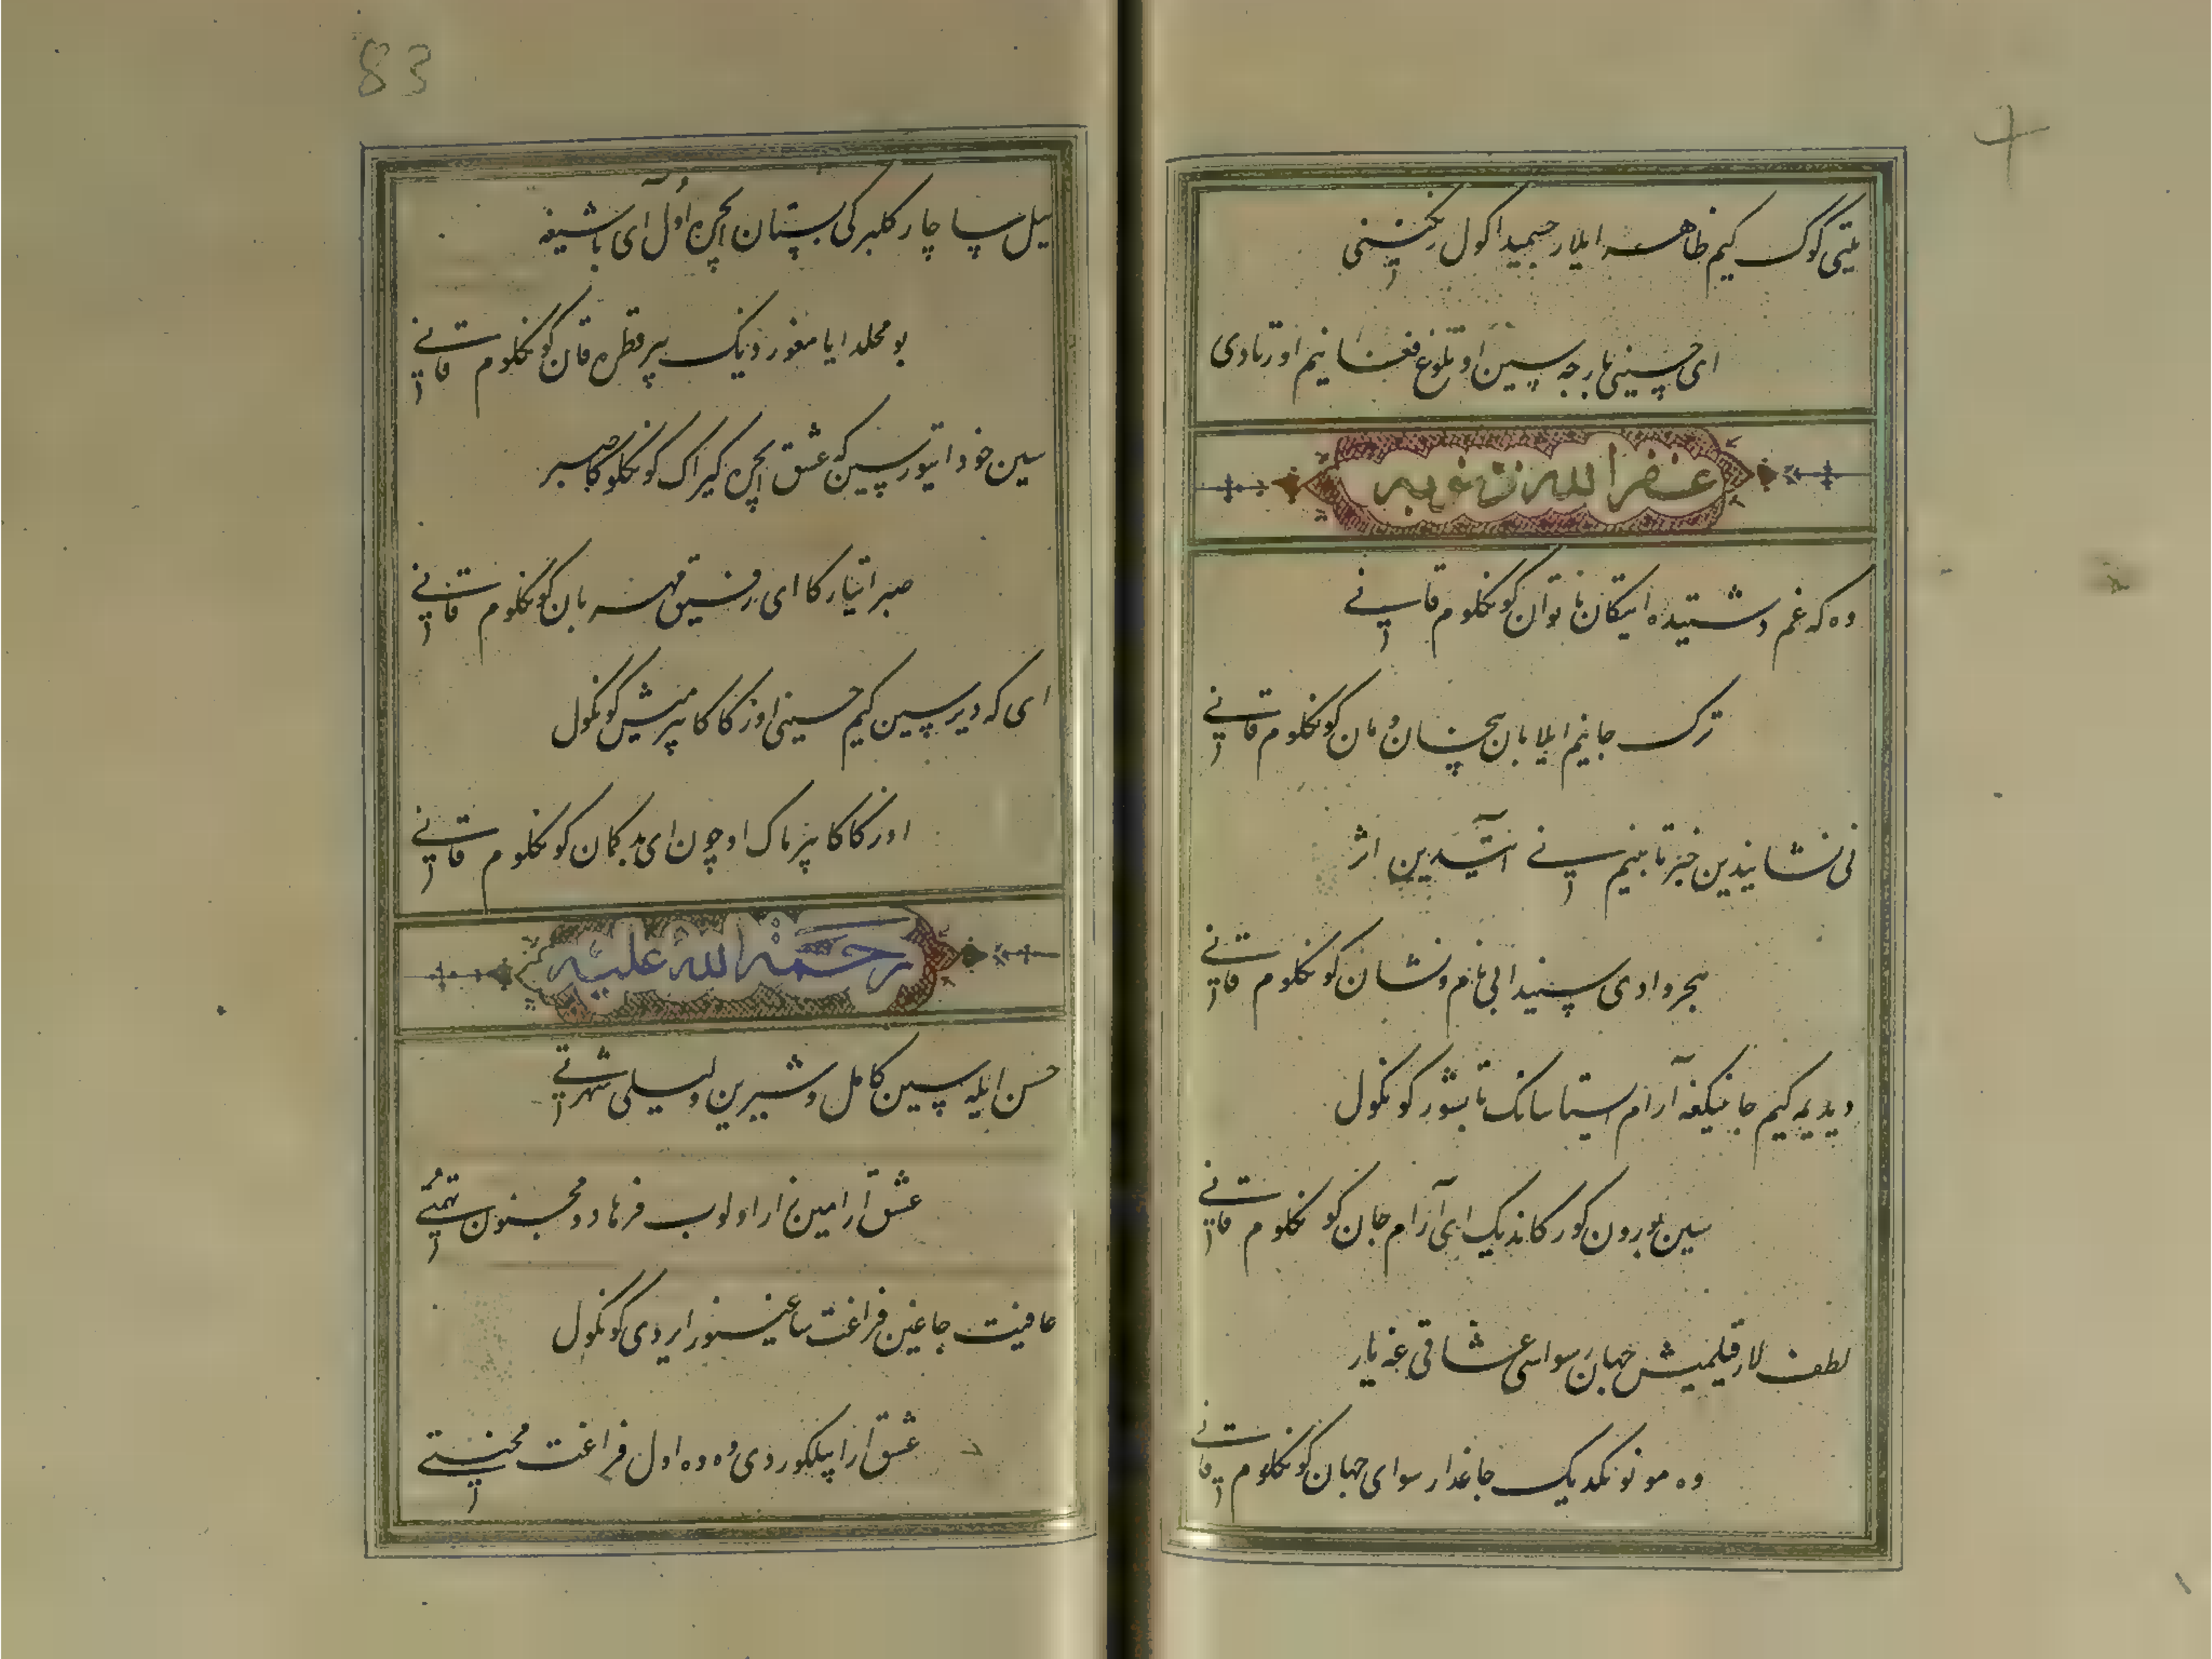 یتی کوک کیم ظاهر ایلار جسمیدا کول رنکینی
ای حسینی بارچه سین اوتلوغ فغانیم اورتادی
غفر الله ذنوبه
وه که غم دشتیده ایتکان ناتوان کونکلوم قانی
ترک جانیم ایلابان بیخان و مان کونکلوم قانی
نی نشانیدین خبر تابیم نی آتیدین اثر
هجر وادی سیندا بی نام و نشان کونکلوم قانی
دیدیمه کیم جانینکغه آرام ایستاسانک تابشور کونکول
سین بورون کورکاندیک ای آرام جان کونکلوم قانی
لطف لار قیلمیش جهان رسواسی عشاقی غه یار
وه مونونکدیک جاغدا رسوای جهان کونکلوم قانی
83
ییل ساچار کلبرکی بستان ایچره اول آی باشیغه
بو محلدا یا مغوردیک بیر قطره قان کونکلوم قانی
سین خود ایتورسین که عشق ایچره کیراک کونکلونکا صبر
صبر ایتیارکا ای رفیق مهربان کونکلوم قانی
ای که دیرسین کیم حسینی اوزکاکا بیرمیش کونکول
اوزکاکا بیرماک اوچون ای بدکمان کونکلوم قانی
رحمة الله علیه
حسن ایله سین کامل و شیرین و لیلی شهرتی
عشق آرا مین زار اولوب فرهاد و مجنون تهمتی
عافیت جاغین فراغت ساغینور ایردی کونکول
عشق آرا بیلکوردی وه وه اول فراغت محنتی